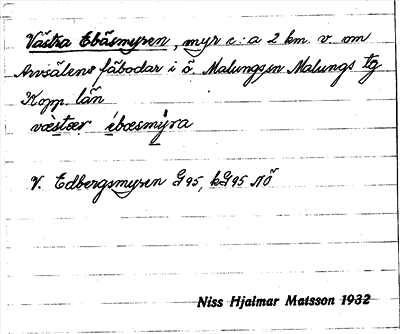 Västra Ebäsmyren, myr c:a 2 km. v. om
Arvsälens fäbodar i ö. Malungs sn Malungs tg
Kopp. län
væstær ébæsmýra
V. Edbergsmyren G95, kG95 NÖ
Niss Hjalmar Matsson 1932